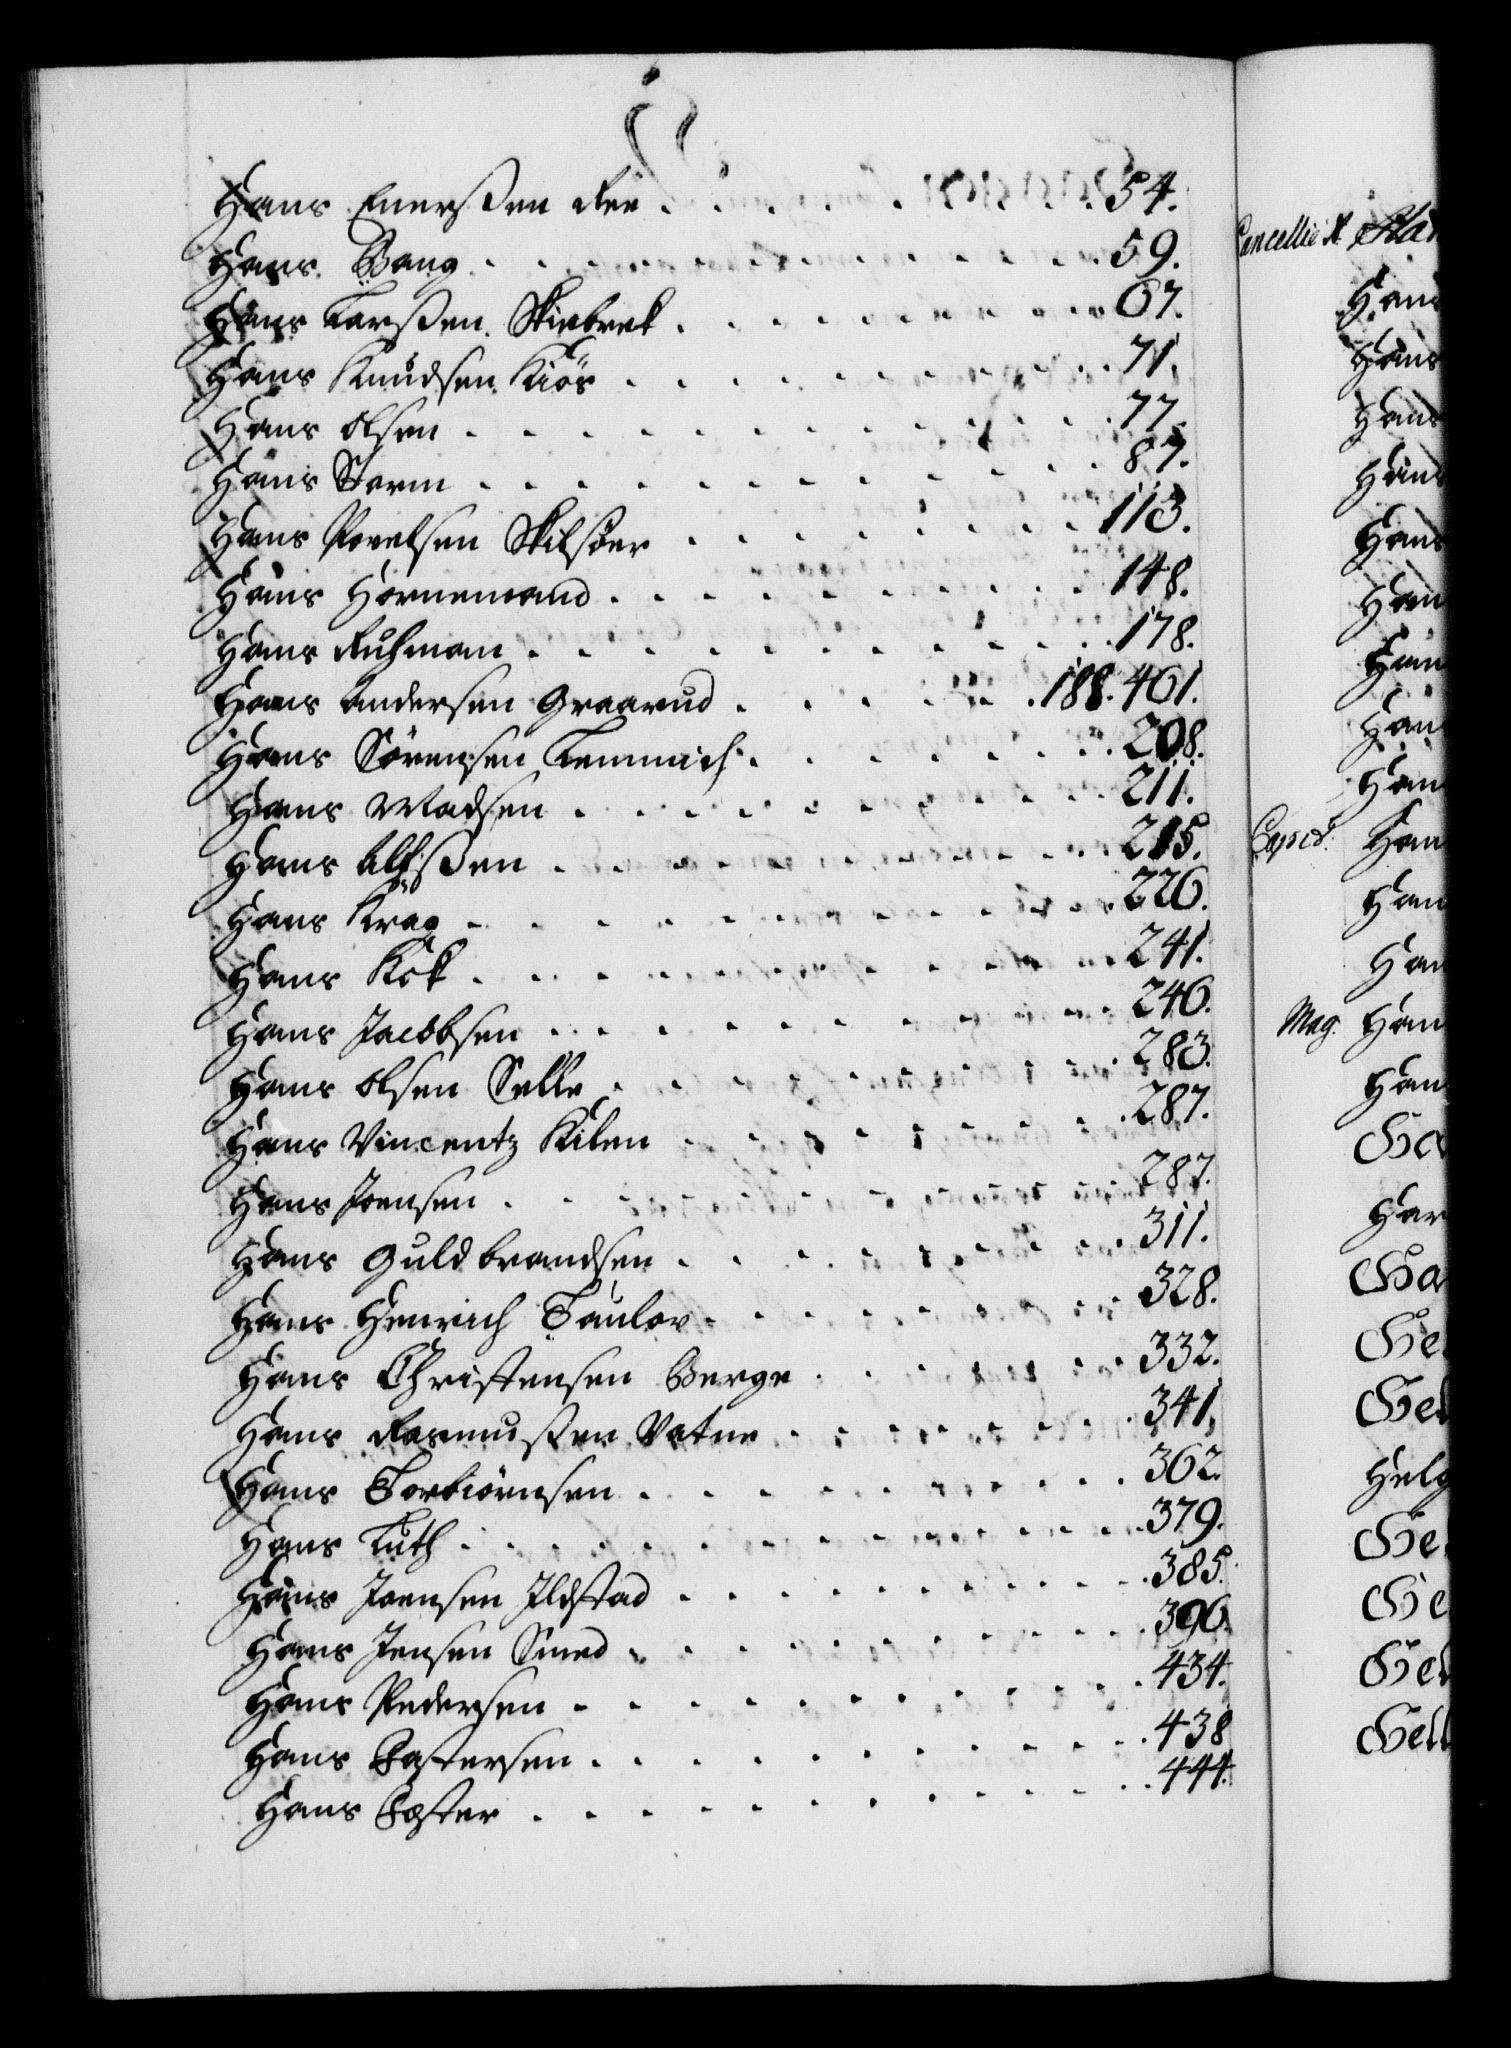 Hans Enersßen Ree . . . . . . 54.
Hans Bang . . . . . . 59.
Hans Larsßen Skiebrek . . . . . . 67.
Hans Knudsen Kiös . . . . . . 71.
Hans Olsen . . . . . . 77.
Hans Sorm . . . . . . 87.
Hans Povelsen Skilsöer . . . . . . 113.
Hans Hornemand . . . . . . 148.
Hans Ruhman . . . . . . 178.
Hans Andersen Graarud . . . . . . 188. 461.
Hans Sörensen Lemmich . . . . . . 208.
Hans Madsen . . . . . . 211.
Hans Alfsßen . . . . . . 215.
Hans Krag . . . . . . 226.
Hans Kok . . . . . . 241.
Hans Jacobsen . . . . . . 246.
Hans Olsen Selle . . . . . . 283.
Hans Vincentz Kilen . . . . . . 287.
Hans Joensen . . . . . . 287.
Hans Guldbrandsen . . . . . . 311.
Hans Henrich Taulov . . . . . . 328.
Hans Christensen Berge . . . . . . 332.
Hans Rasmusßen Vatne . . . . . . 341.
Hans Torbiörnsen . . . . . . 362.
Hans Luth . . . . . . 379.
Hans Joensen Ildstad . . . . . . 385.
Hans Jensen Smed . . . . . . 396.
Hans Pedersen . . . . . . 434.
Hans Castersen . . . . . . 438
Hans Coster . . . . . . 444.
Cancellie R.
Hans
Hans
Hans
Hans
Hans
Capt.
Mag.
Helg